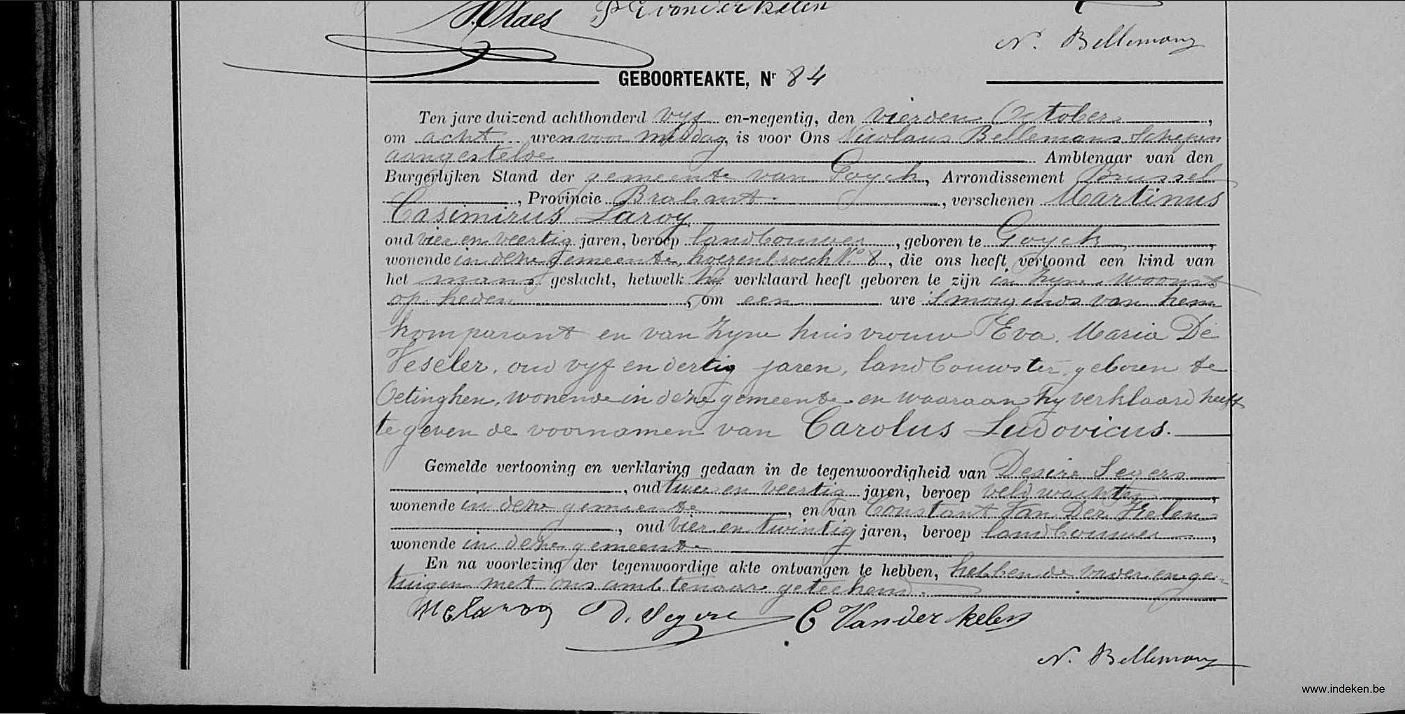 Claes P Vanderkelen
N. Bellemans
GEBOORTEAKTE, Nr 84
Ten jare duizend achthonderd vyf en-negentig, den vierden October,
om acht uren voor middag, is voor Ons Nicolaus Bellemans Schepen
aangestelde Ambtenaar van den
Burgerlijken Stand der gemeente van Goyck, Arrondissement Brussel
, Provincie Brabant, verschenen Martinus
Casimirus Laroy
oud vier en veertig jaren, beroep landbouwer, geboren te Goyck,
wonende in deze gemeente, No 8, die ons heeft vertoond een kind van
het mans geslacht, hetwelk hy verklaard heeft geboren te zijn in zyne woonst
op heden, om een ure 'smorgends van hem
komparant en van zyne huisvrouw Eva Maria De
Veseler, oud vyf en dertig jaren, landbouwster, geboren te
Oetinghen, wonende in deze gemeente en waaraan hy verklaard heeft
te geven de voornamen van Carolus Ludovicus.
Gemelde vertooning en verklaring gedaan in de tegenwoordigheid van Desire Segers
, oud twee en veertig jaren, beroep veldwachter,
wonende in deze gemeente, en van Constant Van Der Kelen
, oud vier en twintig jaren, beroep landbouwer,
wonende in deze gemeente
En na voorlezing der tegenwoordige akte ontvangen te hebben, hebben de vader en ge-
tuigen met ons ambtenaar geteekend.
M C Laroy D. Segers C Vanderkelen
N. Bellemans
www.indeken.be